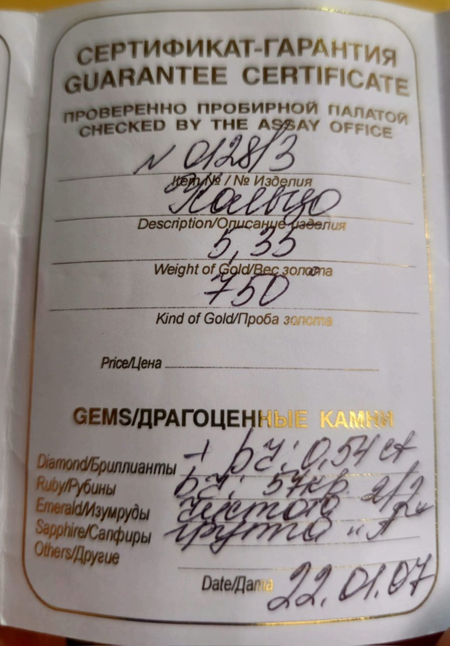 СЕРТИФИКАТ-ГАРАНТИЯ
GUARANTEE CERTIFICATE
ПРОВЕРЕННО ПРОБИРНОЙ ПАЛАТОЙ
CHECKED BY THE ASSAY OFFICE
N 0128/3
Item № / № Изделия
Кольцо
Description/Описание изделия
5,35
Weight of Gold/Вес золота
750°
Kind of Gold/Проба золота
Price/Цена
GEMS/ДРАГОЦЕННЫЕ КАМНИ
Diamond/Бриллианты 0,54 ct
Ruby/Рубины 57кр. 2/2
Emerald/Изумруды чистота
Sapphire/Сапфиры группа "А"
Others/Другие
Date/Дата 22.01.07